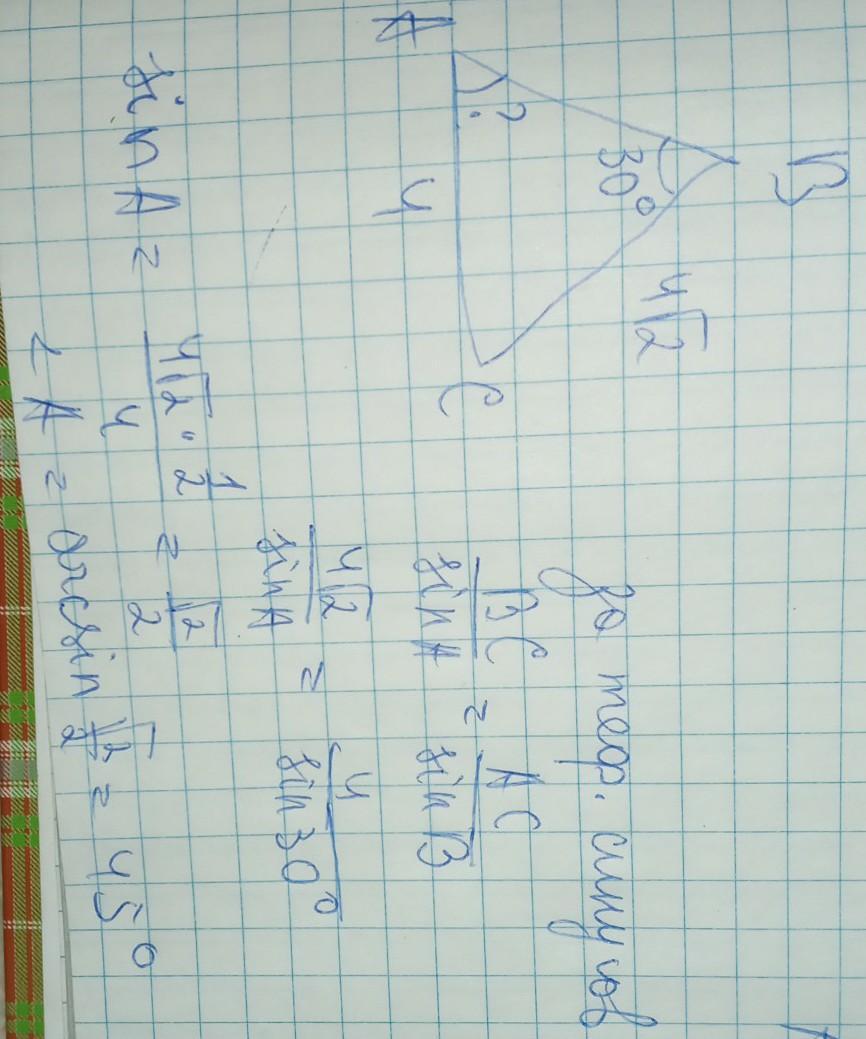 B
30°
4√2
A
?
4
C
До теор. синусов
BC/sin A = AC/sin B
4√2/sin A = 4/sin 30°
sin A = (4√2 · 1/2)/4 = √2/2
∠A = arcsin √2/2 = 45°